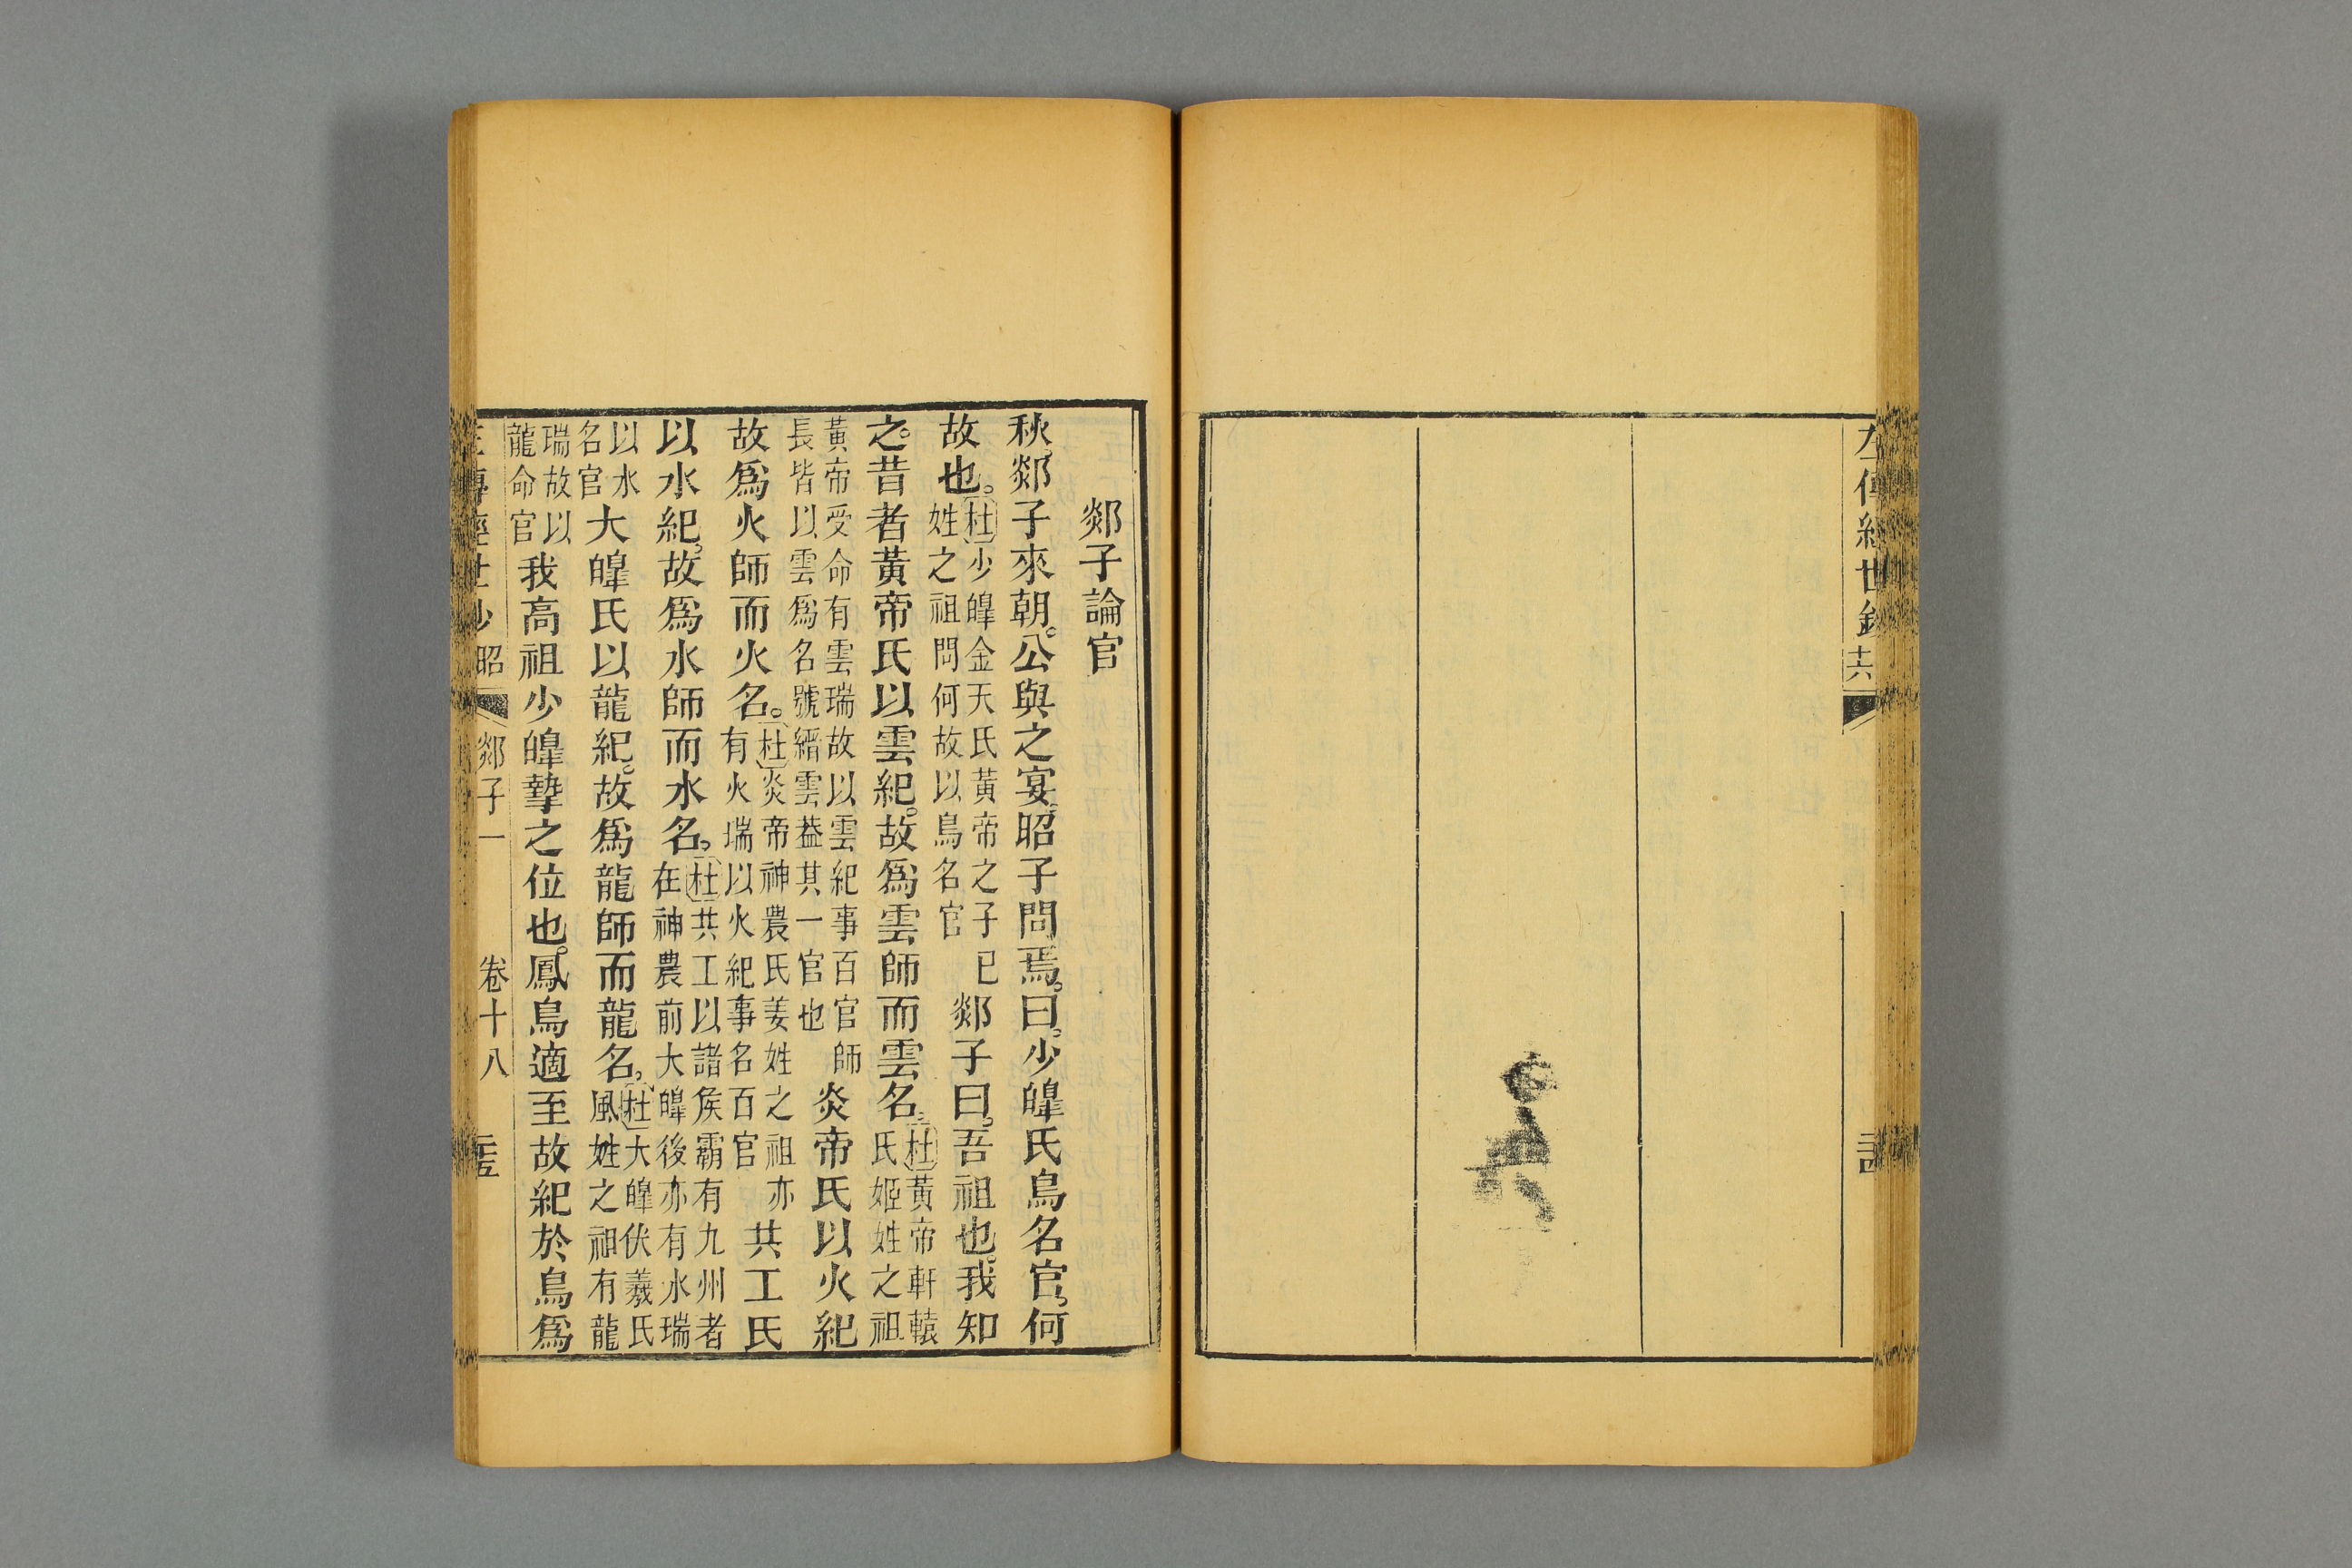 左傳經世鈔
十六
郯子論官
秋郯子來朝。公與之宴。昭子問焉。曰。少皥氏鳥名官。何
故也。杜少皥金天氏黃帝之子已姓之祖問何故以鳥名官郯子曰。吾祖也。我知
之。昔者黃帝氏以雲紀。故爲雲師而雲名。杜黃帝軒轅氏姬姓之祖
黃帝受命有雲瑞故以雲紀事百官師長皆以雲爲名號縉雲葢其一官也炎帝氏以火紀
故爲火師而火名。杜炎帝神農氏姜姓之祖亦有火瑞以火紀事名百官共工氏
以水紀。故爲水師而水名。杜共工以諸矦霸有九州者在神農前大皥後亦有水瑞
以水名官大皥氏以龍紀。故爲龍師而龍名。杜大皥伏羲氏風姓之祖有龍
瑞故以龍命官我高祖少皥摯之位也。鳳鳥適至故紀於鳥爲
昭 郯子一 卷十八